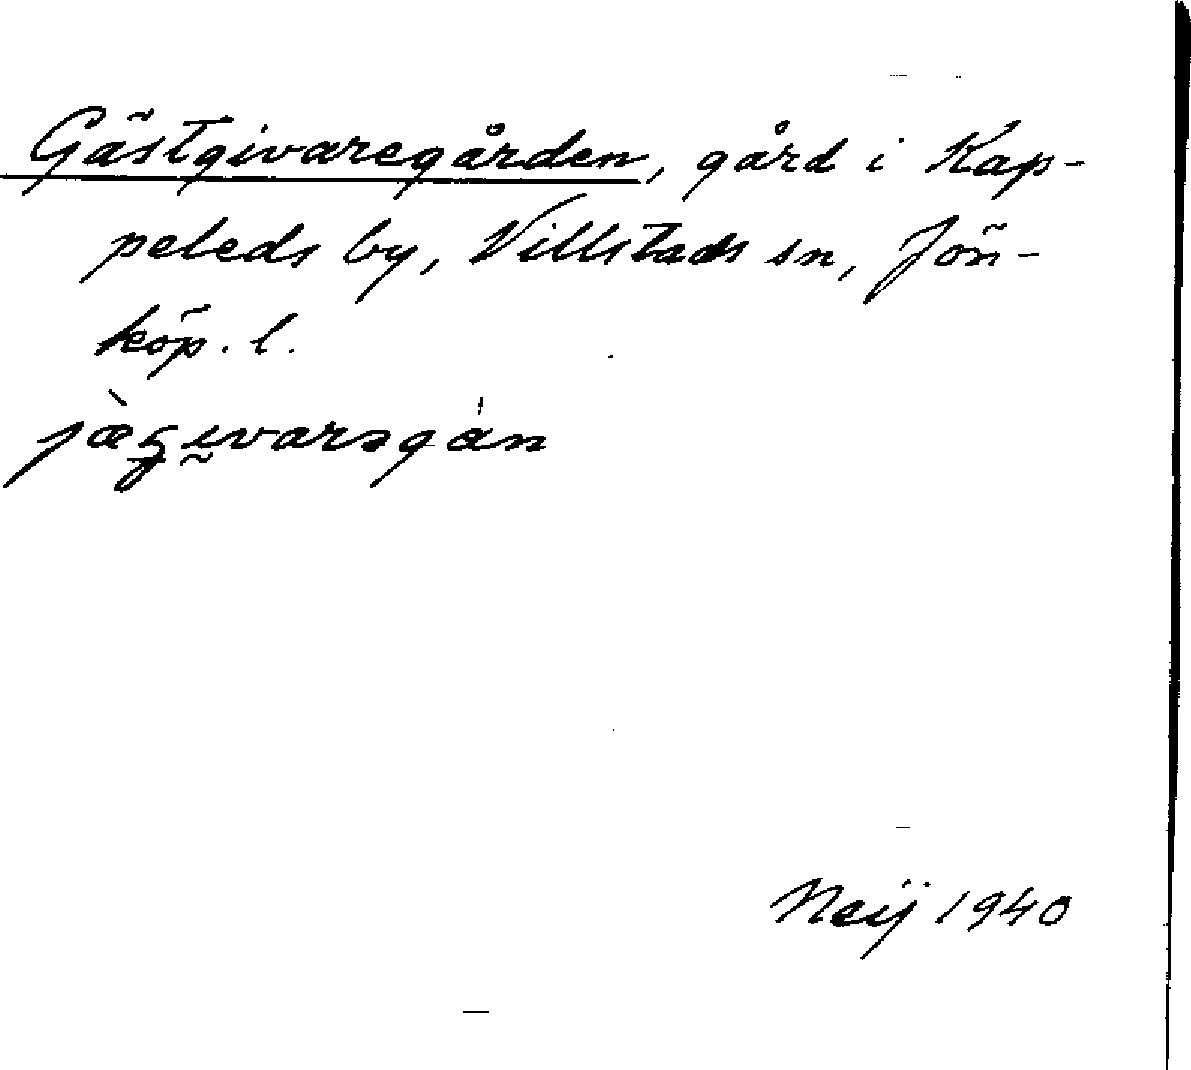 Gästgivaregården, gård i Kap-
peleds by, Villstads sn, Jön-
köp. l.
Neij 1940